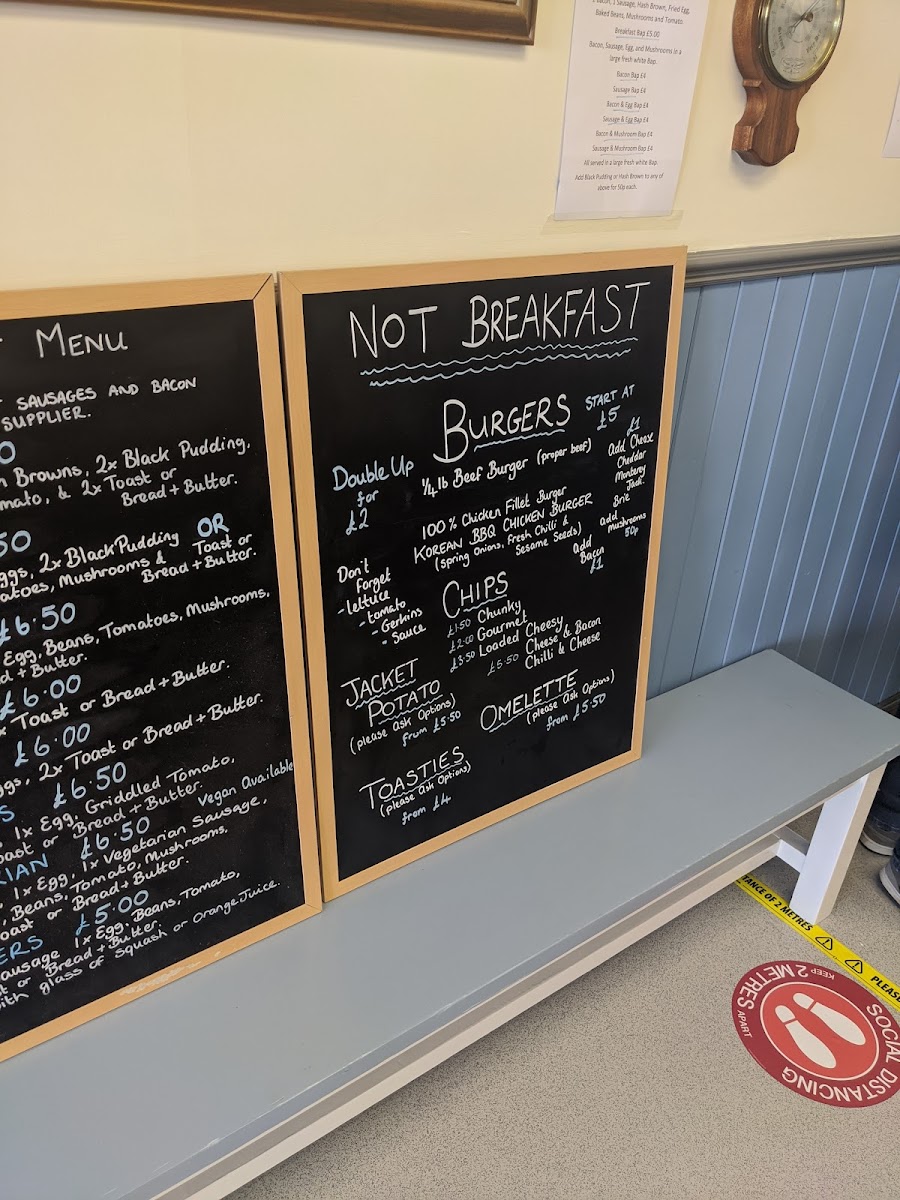 1 Bacon, 1 Sausage, Hash Brown, Fried Egg,
Baked Beans, Mushrooms and Tomato.
Breakfast Bap £5.00
Bacon, Sausage, Egg, and Mushrooms in a
large fresh white Bap.
Bacon Bap £4
Sausage Bap £4
Bacon & Egg Bap £4
Sausage & Egg Bap £4
Bacon & Mushroom Bap £4
Sausage & Mushroom Bap £4
All served in a large fresh white Bap.
Add Black Pudding or Hash Brown to any of
above for 50p each.
MENU
SAUSAGES AND BACON
SUPPLIER.
0
Browns, 2x Black Pudding.
& 2x Toast or
Bread + Butter.
50
2x Black Pudding OR
Mushrooms & Toast or
Bread + Butter.
£6.50
Egg, Beans, Tomatoes, Mushrooms,
+ Butter.
£6.00
Toast or Bread + Butter.
£6.00
2x Toast or Bread + Butter.
£6.50
1x Egg, Griddled Tomato,
or Bread + Butter.
Vegan Available
£6.50
1x Egg, 1x Vegetarian Sausage,
Beans, Tomato, Mushrooms,
or Bread + Butter.
£5.00
1x Egg, Beans, Tomato,
or Bread + Butter.
with glass of Squash or Orange Juice.
NOT BREAKFAST
BURGERS START AT
£5
Double Up
for
£2
1/4 lb Beef Burger (proper beef)
100% Chicken Fillet Burger
KOREAN BBQ CHICKEN BURGER
(spring onions, fresh chilli &
Sesame Seeds)
£1
Add Cheese
Cheddar
Monterey
Jack.
Brie
add
mushrooms
50p
add
Bacon
£1
Don't
forget
-lettuce
-tomato
-Gerkins
-Sauce
CHIPS
£1.50 Chunky
£2.00 Gourmet
£3.50 Loaded Cheesy
£5.50 Cheese & Bacon
Chilli & Cheese
JACKET
POTATO
(please Ask Options)
from £5.50
OMELETTE
(please Ask Options)
from £5.50
TOASTIES
(please Ask Options)
from £4
TANCE OF 2 METRES
PLEASE
KEEP 2 METRES APART
SOCIAL DISTANCING